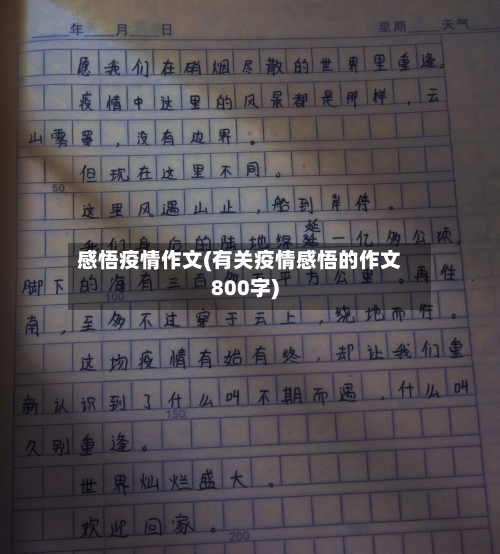 年 月 日 星期 天气
愿我们在硝烟尽散的世界里重逢。
疫情中这里的风景都是那样，云
山雾罩，没有边界。
但现在这里不同。
50
这里风遇山止，船到岸停。
延
地绵 一亿多公顷，
感悟疫情作文(有关疫情感悟的作文
脚下的海有三百 平方公里。再往
800字)
100
南，至多不过穿于云上，绕地而行。
这场疫情有始有终，却让我们重
新认识到了什么叫不期而遇，什么叫
150
久别重逢。
世界灿烂盛大。
欢迎回家。
200